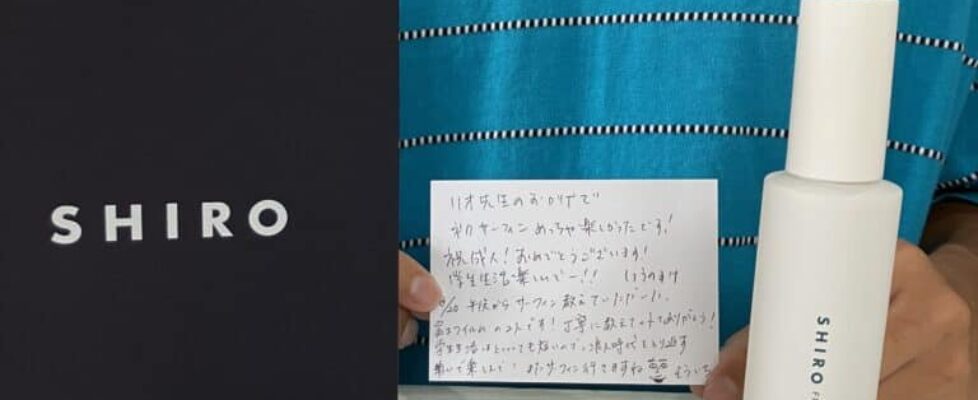 SHIRO
リオ先生のおかげで
初サーフィンめっちゃ楽しかったです!
祝成人!おめでとうございます!
学生生活楽しんでー!! しょうのすけ
/20 午後からサーフィン教えていただ
の2人です!丁寧に教えて ありがとう!
学生生活は 短いので、浪人時代をとり返す
楽しんで! またサーフィン行きますね
SHIRO